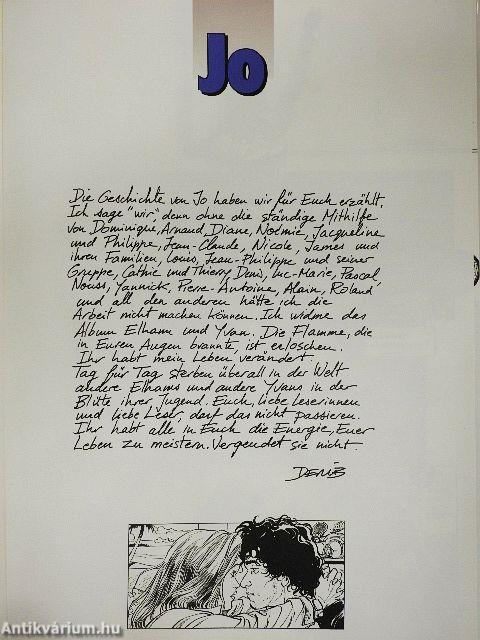 Jo
Die Geschichte von Jo haben wir für Euch erzählt.
Ich sage "wir", denn ohne die ständige Mithilfe
von Dominique, Arnaud, Diane, Noëmie, Jacqueline
und Philippe, Jean-Claude, Nicole, James und
ihren Familien, Louis, Jean-Philippe und seiner
Gruppe, Cathie und Thierry, Denis, Luc-Marie, Pascal,
Nouss, Yannick, Pierre-Antoine, Alain, Roland
und all den anderen hätte ich die
Arbeit nicht machen können. Ich widme das
Album Elham und Yvan. Die Flamme, die
in Euren Augen brannte, ist erloschen.
Ihr habt mein Leben verändert.
Tag für Tag sterben überall in der Welt
andere Elhams und andere Yvans in der
Blüte ihrer Jugend. Euch, liebe Leserinnen
und liebe Leser, darf das nicht passieren.
Ihr habt alle in Euch die Energie, Euer
Leben zu meistern. Vergeudet sie nicht.
DERIB
Antikvárium.hu